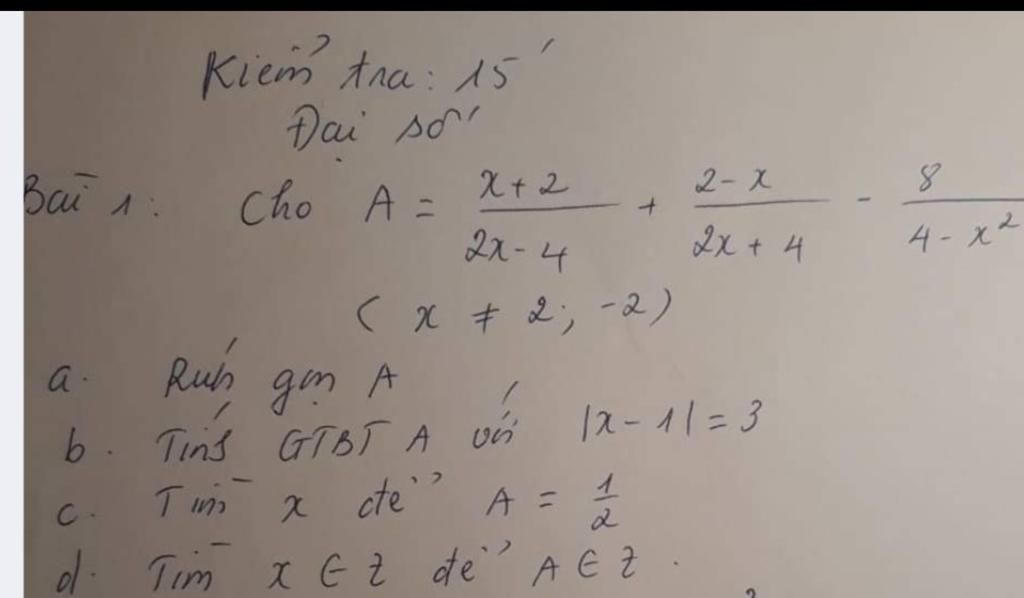 Kiểm tra: 15'
Đại số
Bài 1: Cho A = \frac{x+2}{2x-4} + \frac{2-x}{2x+4} - \frac{8}{4-x^2}
( x ≠ 2; -2)
a. Rút gọn A
b. Tính GTBT A với |x-1| = 3
c. Tìm x để A = \frac{1}{2}
d. Tìm x ∈ Z để A ∈ Z.